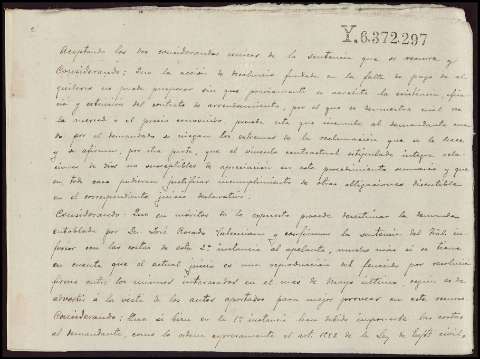 Y.6.372.297
Aceptando los dos considerandos de la sentencia que se recurre y
Considerando: Que la acción de desahucio fundada en la falta de pago de al
quileres no puede prosperar sin que previamente se acredite la existencia, efica
cia y extensión del contrato de arrendamiento, por el que se demuestre cual sea
la merced o el precio convenido, prueba esta que incumbe al demandante cuan
do por el demandado se niegan los extremos de la reclamación que se le hace
y se afirma, por otra parte, que el vínculo contractual estipulado integra rela
ciones de no susceptibles de apreciación en este procedimiento sumario y que
en todo caso pudieran justificar incumplimiento de otras obligaciones discutible
en el correspondiente juicio declarativo.
Considerando: Que en méritos de lo expuesto procede desestimar la demanda
entablada por Dn. José y confirmar la sentencia del
con las costas de esta 2ª instancia al apelante, mucho más si se tiene
en cuenta que el actual juicio es una reproducción del fenecido por resolución
firme entre los mismos interesados en el mes de Mayo último, según es de
advertir á la vista de los autos aportados para mejor proveer en este recurso
Considerando: Que si bien en la 1ª instancia han debido imponerse las costas
al demandante, como lo ordena expresamente el art. 1582 de la Ley de civil